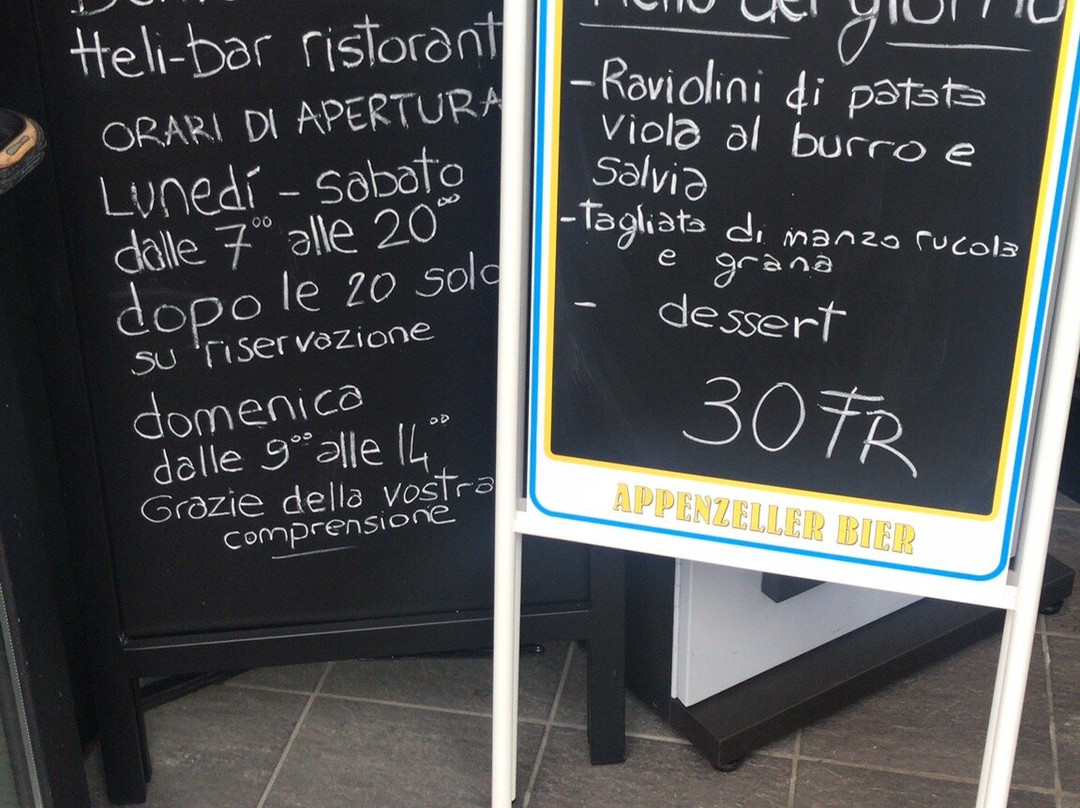 Heli-bar ristorant
ORARI DI APERTURA
Lunedí - sabato
dalle 7°° alle 20°°
dopo le 20 solo
su riservazione
domenica
dalle 9°° alle 14°°
Grazie della vostra
comprensione
del giorno
- Raviolini di patata
viola al burro e
salvia
- Tagliata di manzo rucola
e grana
- dessert
30 FR
APPENZELLER BIER